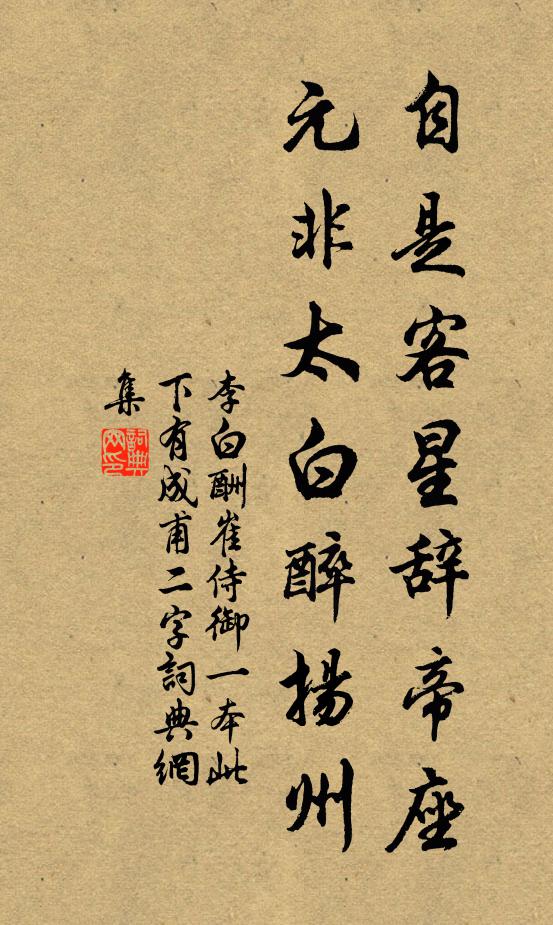 自是客星辞帝座
元非太白醉揚州
李白酬崔侍御一本此
下有成甫二字詞典網
集
詞典網印